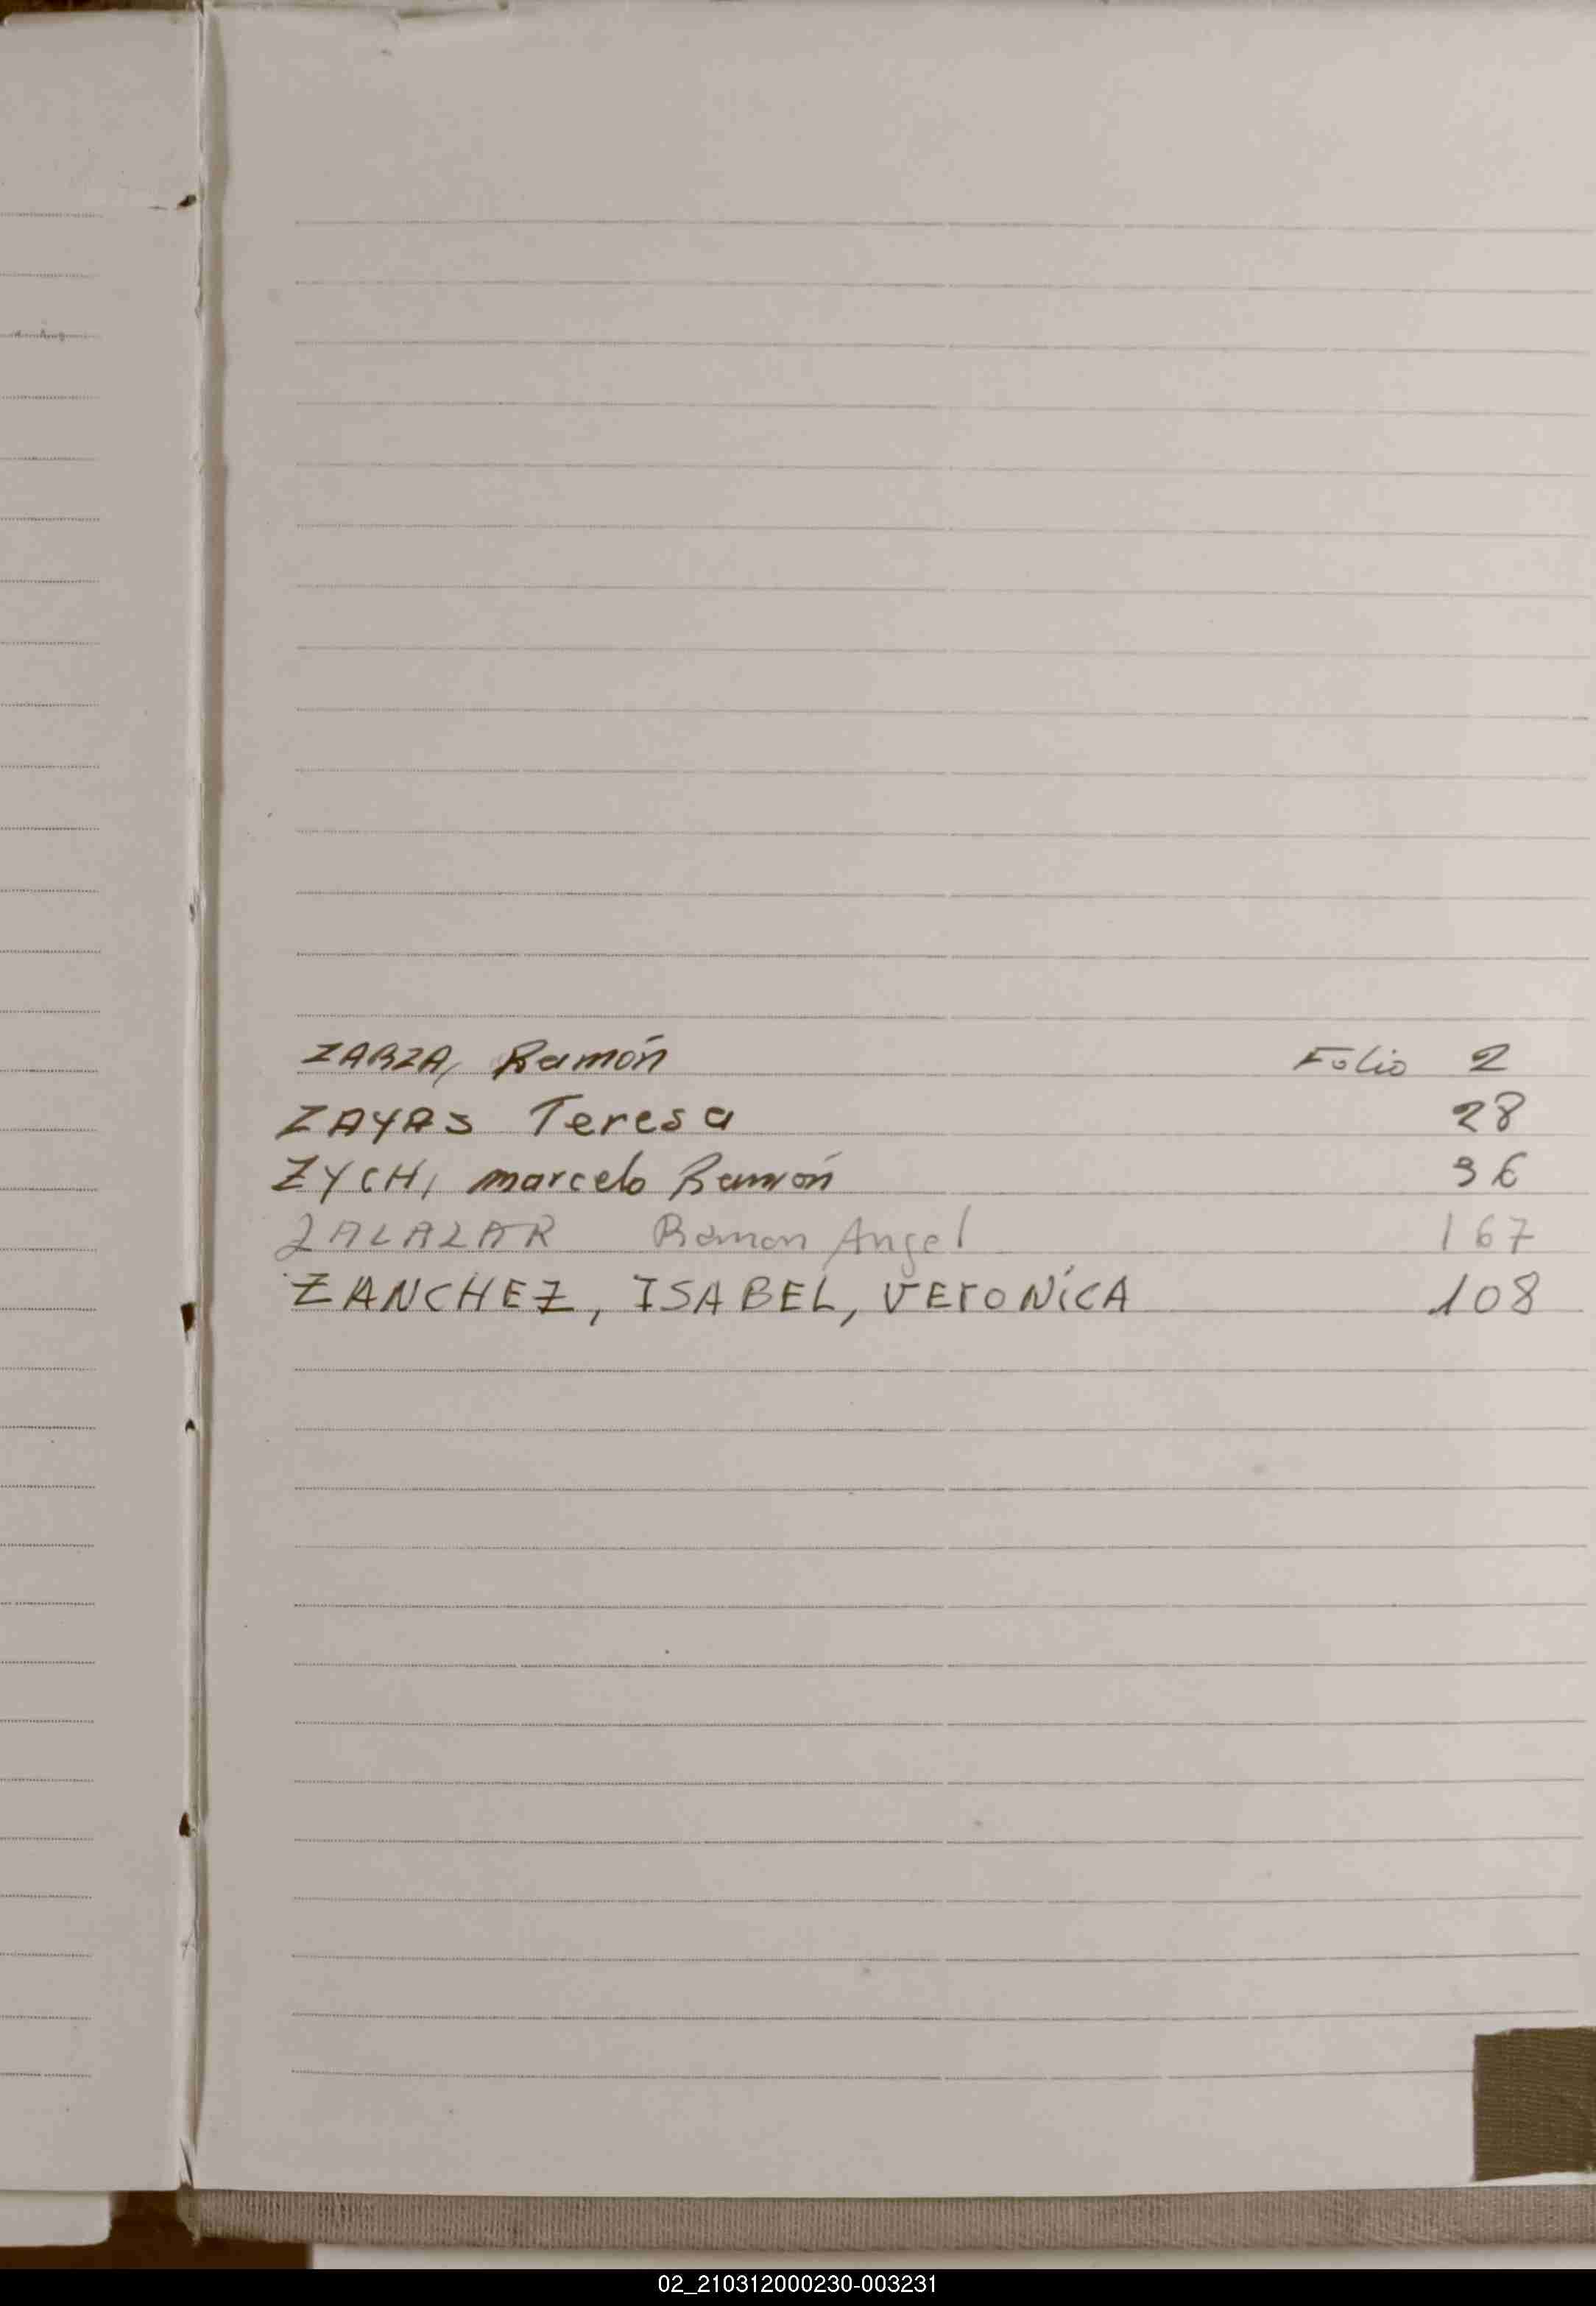 ZARZA, Ramón Folio 2
ZAYAS Teresa 28
ZYCH, marcelo Ramón 36
ZALAZAR Ramon Angel 167
ZANCHEZ, ISABEL, VErONíCA 108
02_210312000230-003231